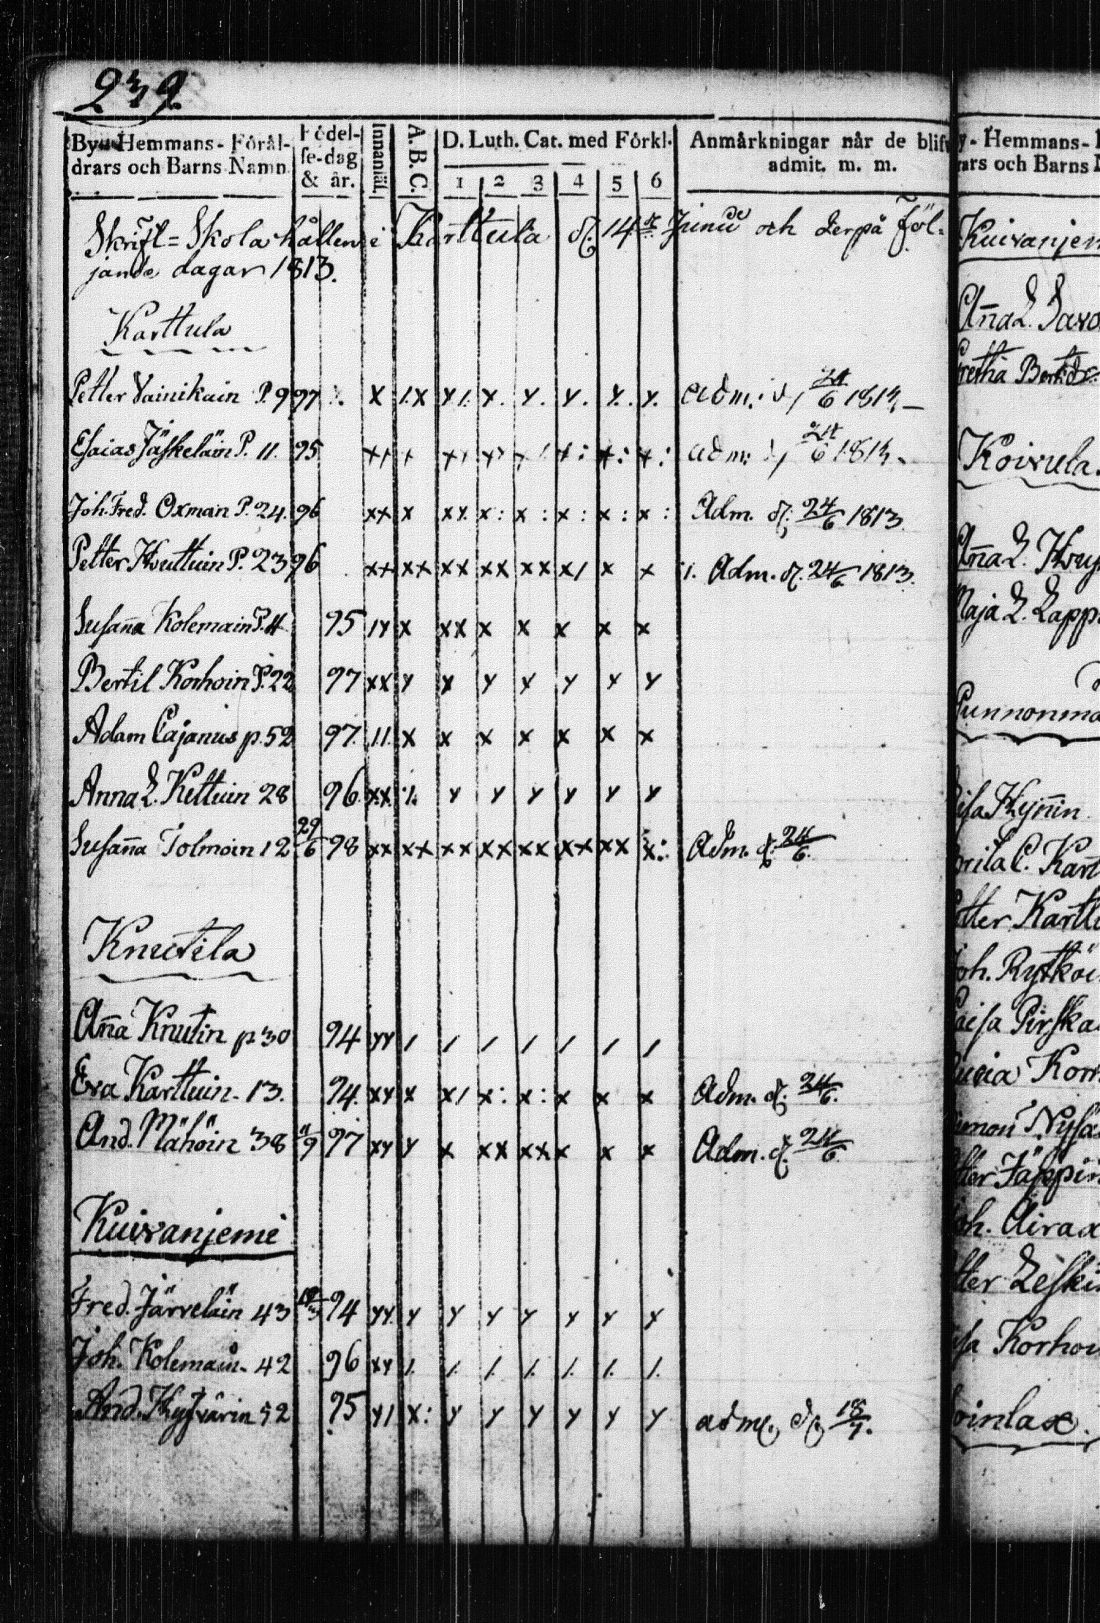 239
By- Hemmans- Föräl-
drars och Barns Namn.
Födel-
se-dag
& år.
Innanläl.
A. B. C.
D. Luth. Cat. med Förkl.
1 2 3 4 5 6
Anmärkningar när de blifv
admit. m. m.
Skrift= Skola hållen i Karttula d. 14de Junii och derpå föl-
jande dagar 1813.
Karttula
Petter Vainikain P. 9 97 x 1.x x1. x. x. x. x. x. adm. d. 24/6 1813
Esaias Jäskeläin P. 11. 95 xx x adm: d. 24/6 1813.
Joh. Fred. Oxman P. 24. 96 xx x xx. x: x: x: x: x: Adm. d. 24/6 1813.
Petter Huttuin P. 23 96 xx xx xx xx xx x/ x x 1. Adm. d. 24/6 1813.
Susanna Kolemain P. 11. 95 1x x xx x x x x x
Bertil Korhoin P. 22 97 xx x x x x x x x
Adam Cajanus p. 52 97. 11. x x x x x x x
Anna L. Kettuin 28 96. xx. 1. x x x x x x
Susanna Tolmoin 12 29/6 98 xx xx xx xx xx xx xx x: Adm. d. 24/6.
Knutila
Anna Knutin p 30 94 xx / / / / / / /
Eva Karttuin. 13. 94. xx x x/ x: x: x x x Adm. d. 24/6.
And. Mähöin 38 11/9 97 xx x x xx xx x x x Adm. d. 24/6.
Kuivanjemi
Fred. Järveläin 43 94 xx. x x x x x x x
Joh. Kolemain. 42 96 xx 1. 1. 1. 1. 1. 1. 1.
And. 52 95 x1. x: x x x x x x adm. d. 18/7.
y- Hemmans-
rars och Barns N
Kuivanjem
Anna L. Savo
retha
Koivula.
Anna L.
Maja L. Lapp
Punnonmä
isa Hynin
rita C. Kart
etter Karttu
Joh. Rytköi
aisa Pirska
Korr
imon Nysä
tter Jäppin
oh. Airax
tter Leski
sa Korhoi
oinlax.